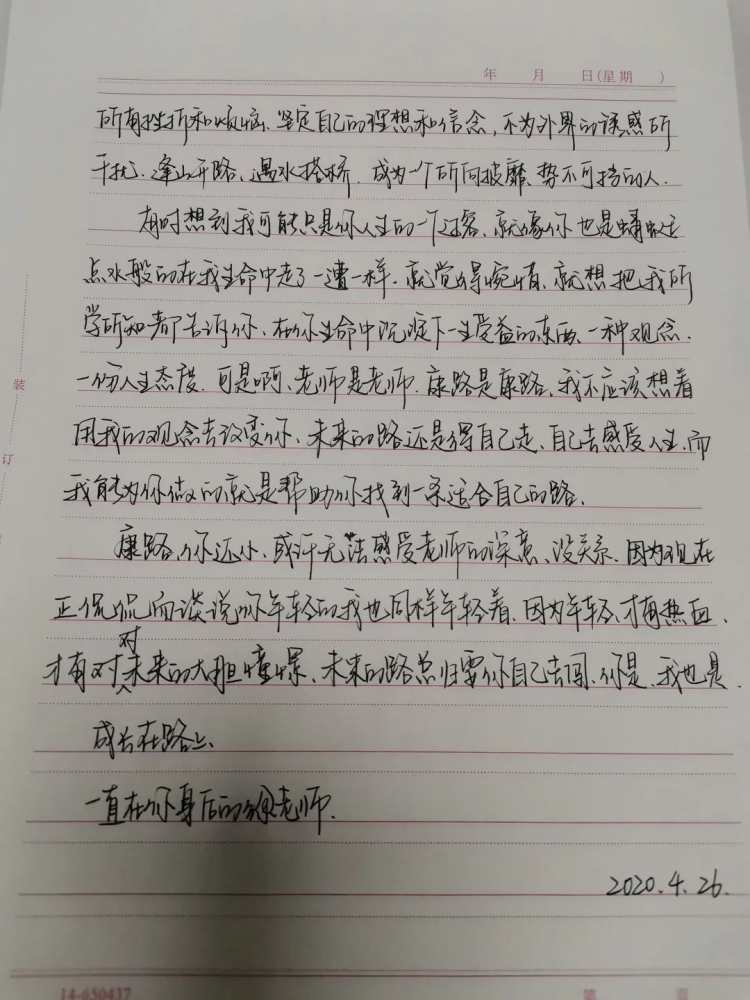 年 月 日(星期 )
所有挫折和烦恼、坚定自己的理想和信念,不为外界的诱惑所
干扰、逢山开路、遇水搭桥、成为一个所向披靡、势不可挡的人.
有时想到我可能只是你人生的一个过客、就像你也是蜻蜓
点水般的在我生命中走了一遭一样.就觉得惋惜、就想把我所
学所知都告诉你、在你生命中沉淀下一生受益的东西、一种观念.
一份人生态度.可是啊、老师是老师.康路是康路、我不应该想着
用我的观念去改变你、未来的路还是得自己走、自己去感受人生.而
我能为你做的就是帮助你找到一条适合自己的路.
康路、你还小、或许无法感受老师的深意、没关系.因为现在
正侃侃而谈说你年轻的我也同样年轻着、因为年轻、才有热血.
才有对对未来的大胆憧憬、未来的路总归要你自己去闯、你是、我也是.
成长在路上、
一直在你身后的 老师.
2020.4.26.
装
订
14-650437
第 页